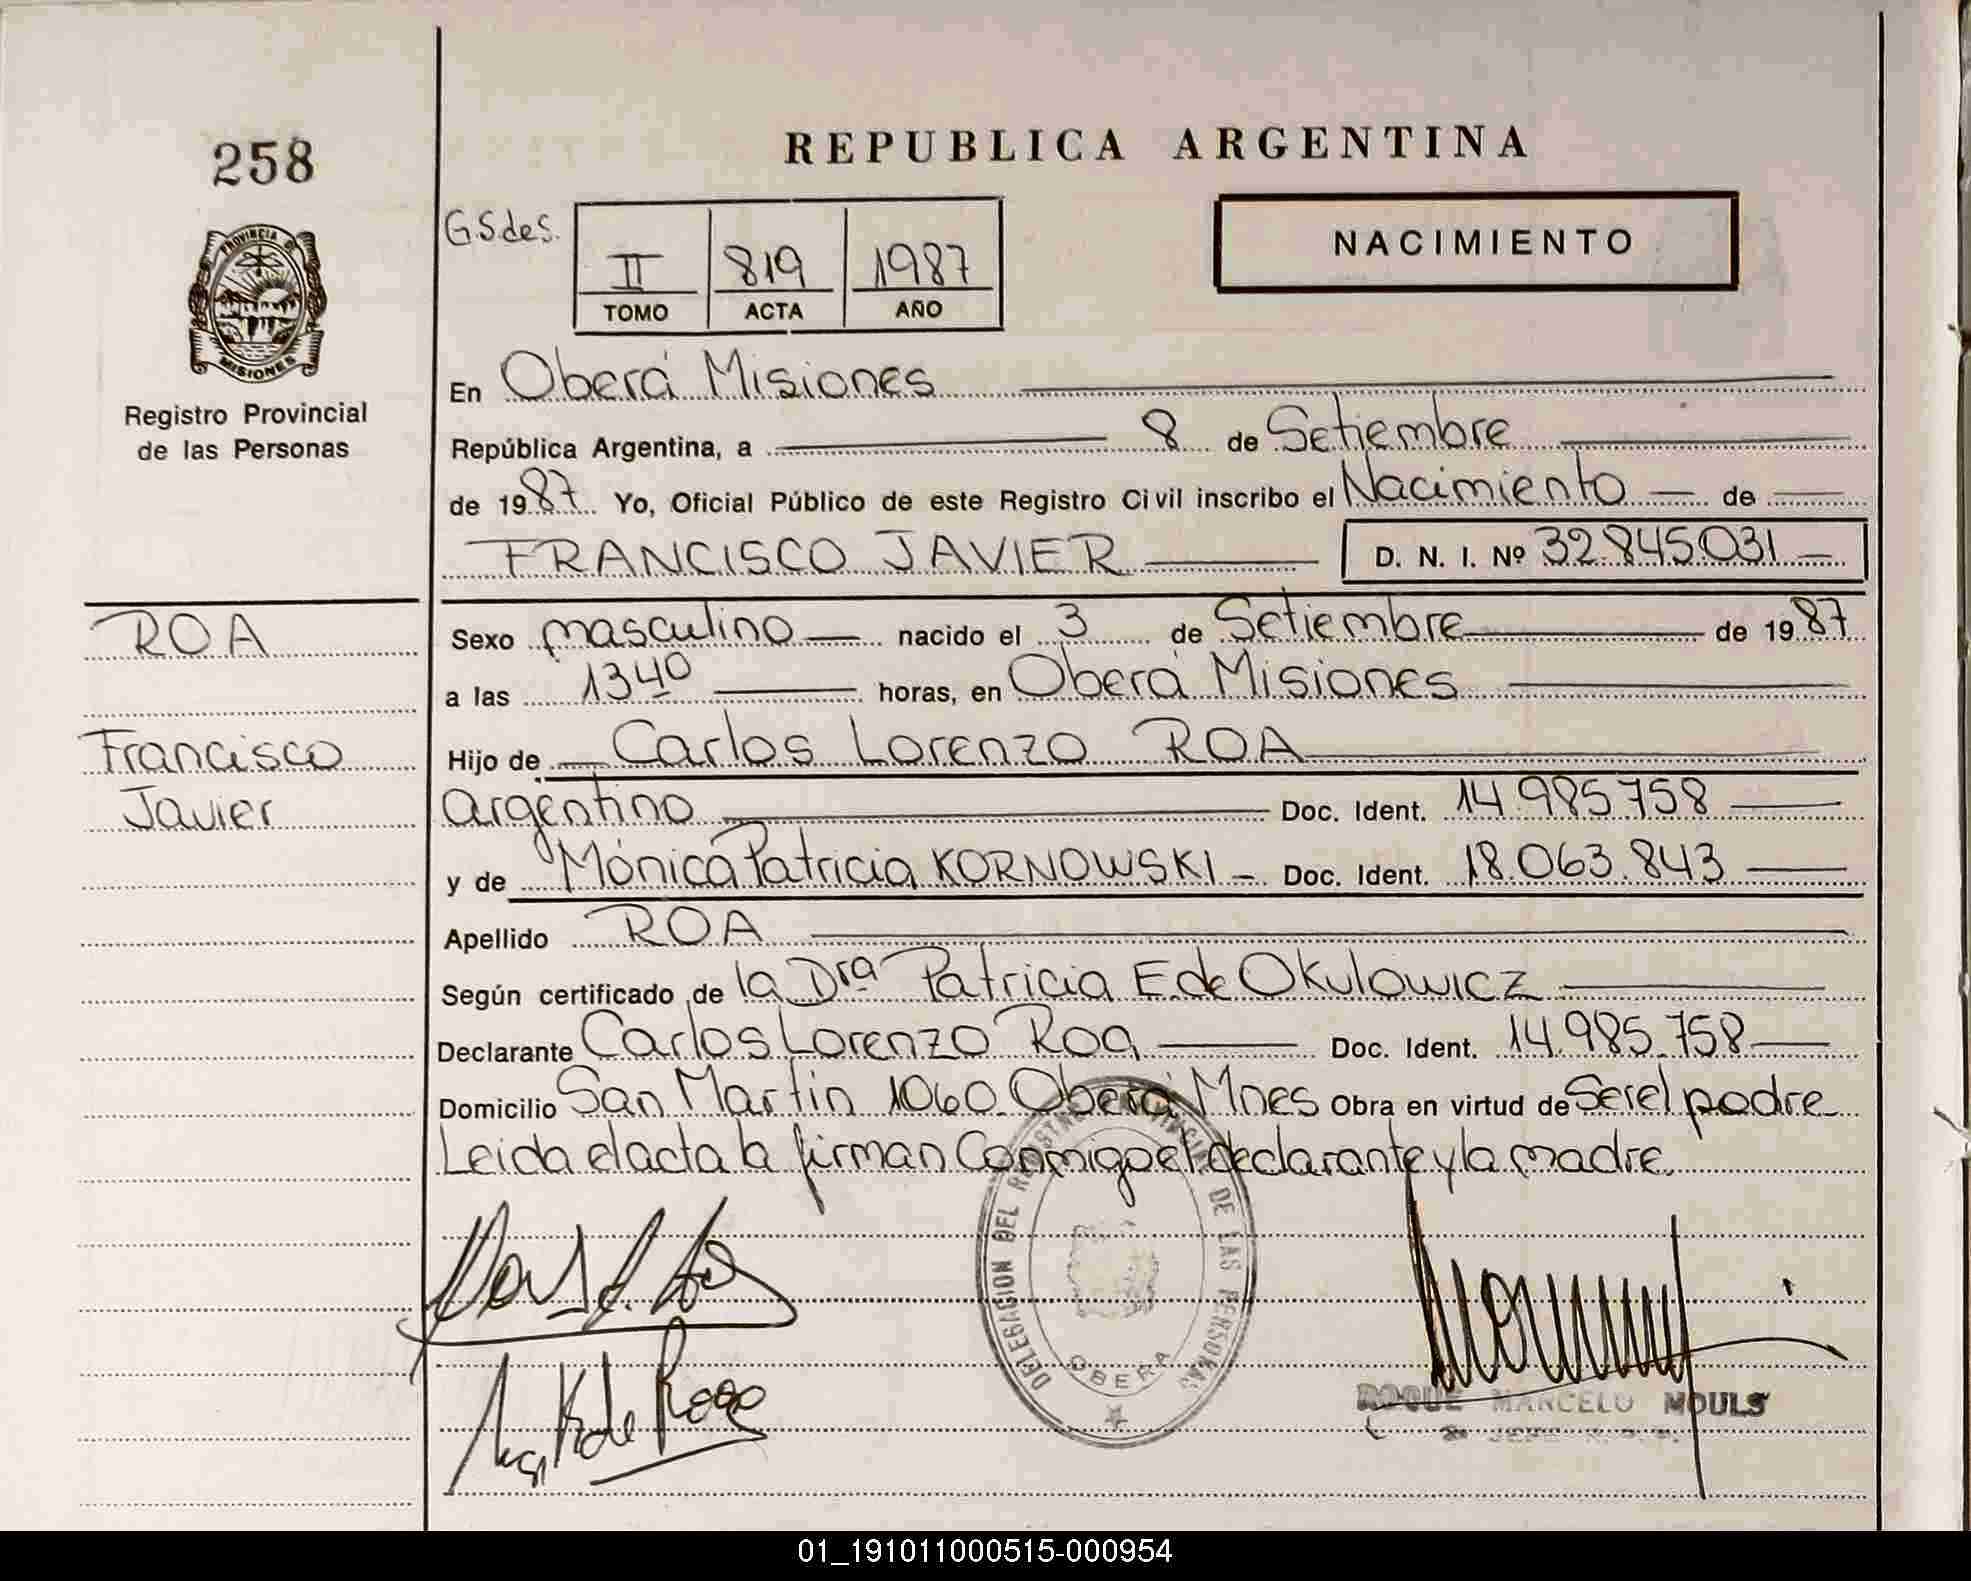 REPUBLICA ARGENTINA
258
G.S.des.
II 819 1987
TOMO ACTA AÑO
NACIMIENTO
PROVINCIA DE MISIONES
Registro Provincial
de las Personas
En Oberá Misiones
República Argentina, a 8 de Setiembre
de 1987 Yo, Oficial Público de este Registro Civil inscribo el Nacimiento de
FRANCISCO JAVIER D. N. I. Nº 32.845.031
ROA
Francisco
Javier
Sexo masculino nacido el 3 de Setiembre de 1987
a las 1340 horas, en Oberá Misiones
Hijo de Carlos Lorenzo ROA
argentino Doc. Ident. 14.985.758
y de Mónica Patricia KORNOWSKI Doc. Ident. 18.063.843
Apellido ROA
Según certificado de la Dra Patricia E. de Okulowicz
Declarante Carlos Lorenzo Roa Doc. Ident. 14.985.758
Domicilio San Martin 1060 Oberá Mnes Obra en virtud de Ser el padre
Leida el acta la firman Conmigo el declarante y la madre.
DELEGACION DEL REGISTRO PROVINCIAL DE LAS PERSONAS
OBERA
ROQUE MARCELO MOULS
01_191011000515-000954